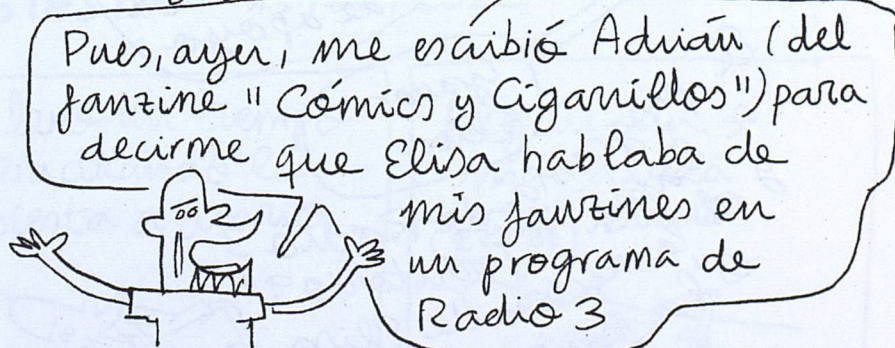 Pues, ayer, me escribió Adrián (del
fanzine "Cómics y Cigarrillos") para
decirme que Elisa hablaba de
mis fanzines en
un programa de
Radio 3